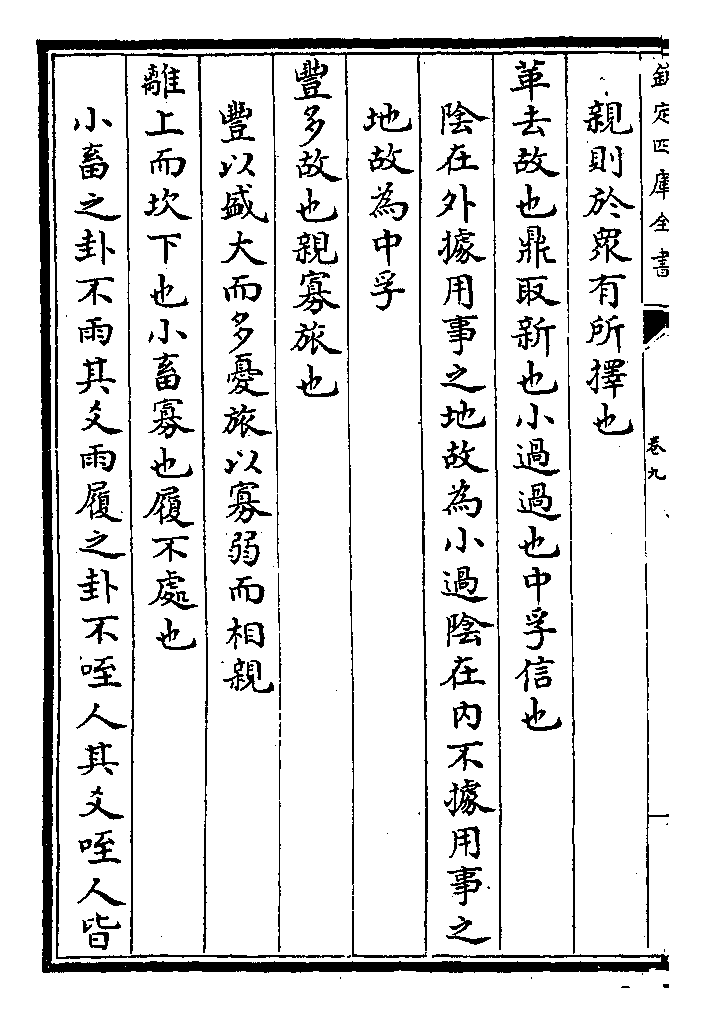 欽定四庫全書
卷九
親則於眾有所擇也
革去故也鼎取新也小過過也中孚信也
陰在外據用事之地故為小過陰在内不據用事之
地故為中孚
豐多故也親寡旅也
豐以盛大而多憂旅以寡弱而相親
離上而坎下也小畜寡也履不處也
小畜之卦不雨其爻雨履之卦不咥人其爻咥人皆